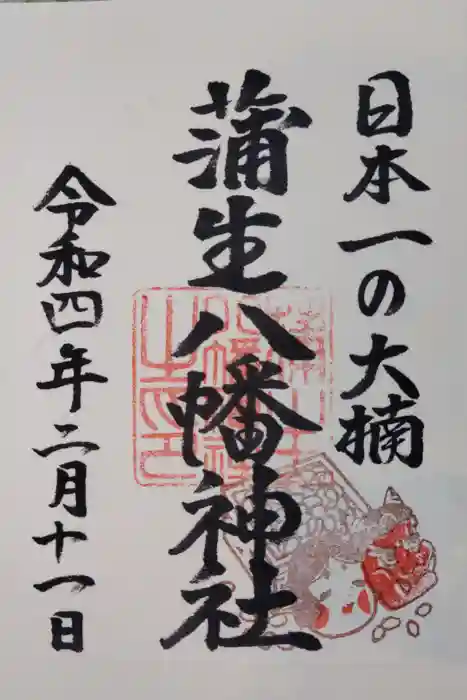 日本一の大楠
蒲生八幡神社
令和四年二月十一日